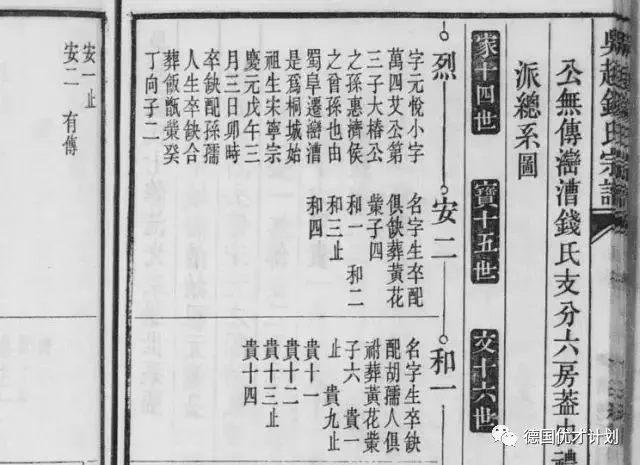 吳越錢氏宗譜
公無傳灣漕錢氏支分六房葢
派總系圖
家十四世
寶十五世
文十六世
烈
字元悅小字
萬四艾公第
三子大椿公
之孫惠濟侯
之曾孫也由
蜀阜遷灣漕
是爲桐城始
祖生宋寧宗
慶元戊午三
月三日卯時
卒缺配孫孺
人生卒缺合
葬飯甑藂癸
丁向子二
安一止
安二 有傳
安二
名字生卒配
俱缺葬黃花
藂子四
和一 和二
和三止
和四
和一
名字生卒缺
配胡孺人俱
祔葬黃花藂
子六 貴一
止 貴九止
貴十一
貴十二
貴十三止
貴十四
德国优才计划